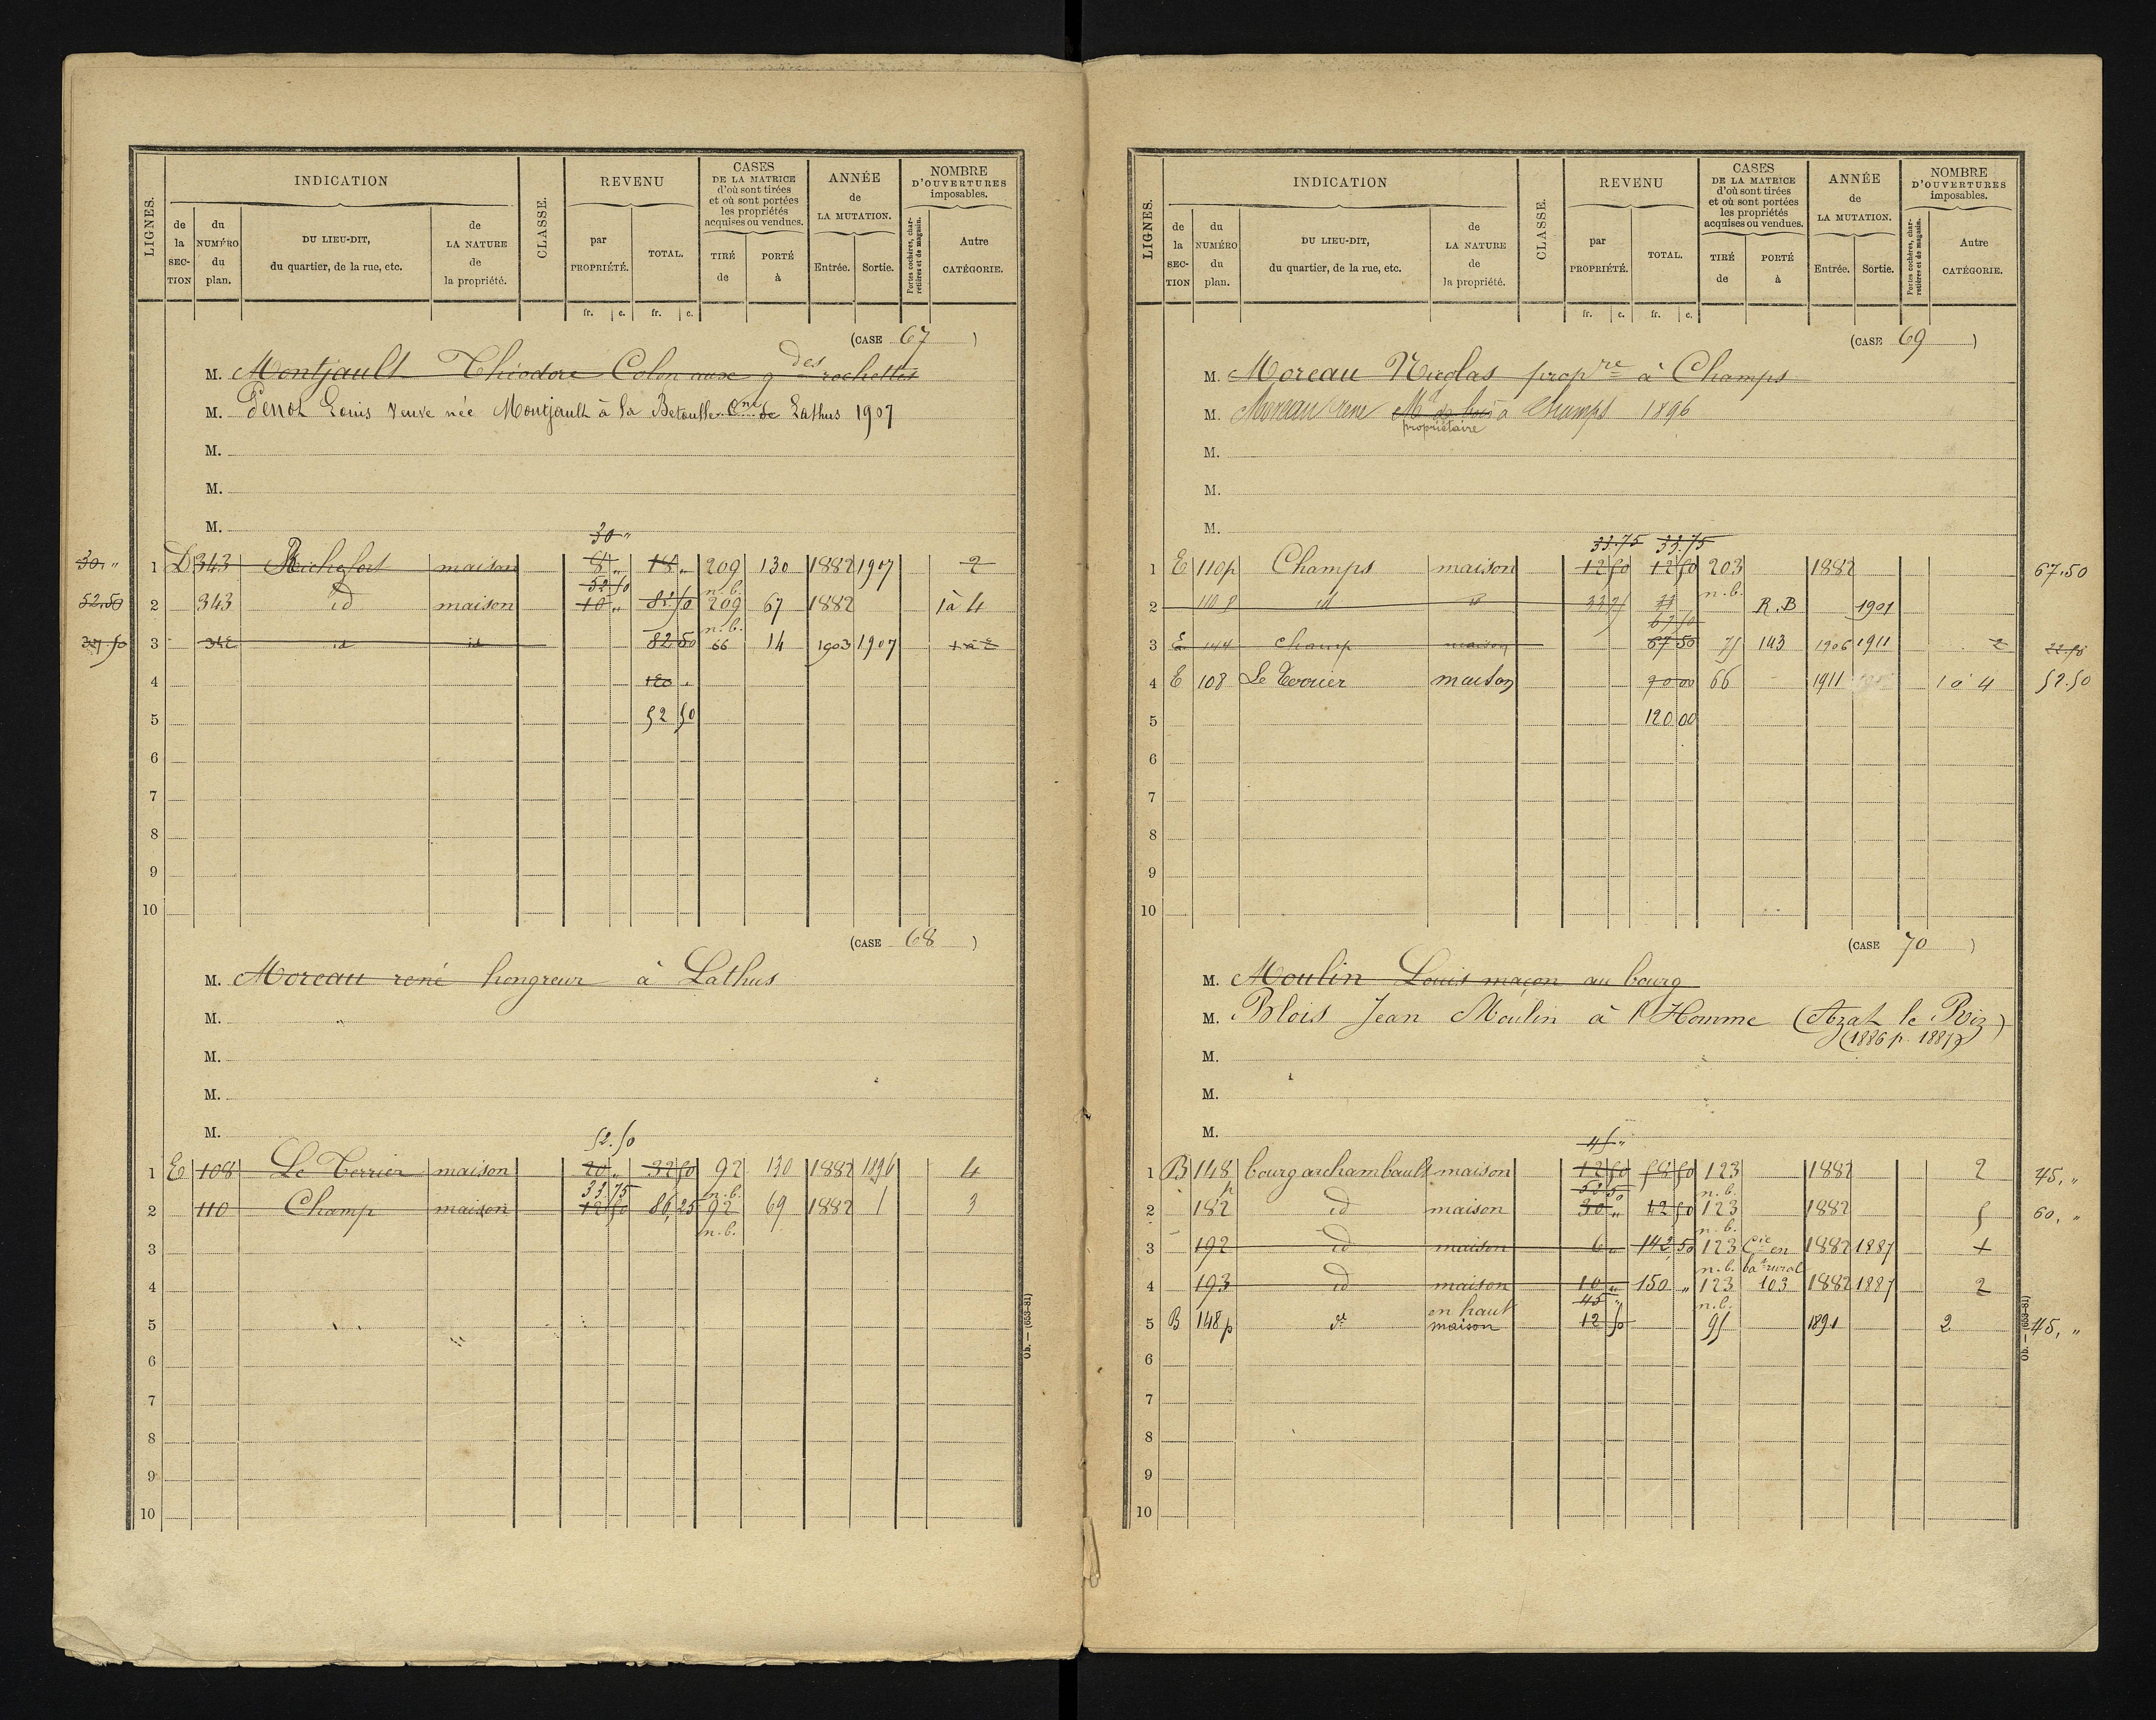 LIGNES. INDICATION CLASSE. REVENU CASES DE LA MATRICE d'où sont tirées et où sont portées les propriétés acquises ou vendues. ANNÉE de LA MUTATION. NOMBRE D'OUVERTURES imposables.
de la SECTION du NUMÉRO du plan. DU LIEU-DIT, du quartier, de la rue, etc. de LA NATURE de la propriété. par PROPRIÉTÉ. TOTAL. TIRÉ de PORTÉ à Entrée. Sortie. Portes cochères, charretières et de magasin. Autre CATÉGORIE.
fr. c. fr. c.
(CASE 67)
M. Montjault Théodore Colon aux g des rochettes
M. Penot Louis Veuve née Montjault à la Betoulle Cne de Lathus 1907
M.
M.
M.
30 "
30. " 1 D 343 Richefort maison 8 " 18 " 209 130 1882 1907 2
52.50 n.b.
52.50 2 343 id maison 10 " 82.50 209 67 1882 1 à 4
n.b.
37.50 3 342 id id 82 50 66 14 1903 1907 1 à 2
4 120 "
5 52 50
6
7
8
9
10
(CASE 68)
M. Moreau rené hongreur à Lathus
M. "
M.
M.
M.
52.50
1 E 108 Le Terrier maison 20 " 32 50 92 130 1882 1896 4
33.75 n.b.
2 110 Champ maison 12 50 86,25 92 69 1882 / 3
n.b.
3
4
5
6
7
8
9
10
Ob. — (653-81)
LIGNES. INDICATION CLASSE. REVENU CASES DE LA MATRICE d'où sont tirées et où sont portées les propriétés acquises ou vendues. ANNÉE de LA MUTATION. NOMBRE D'OUVERTURES imposables.
de la SECTION du NUMÉRO du plan. DU LIEU-DIT, du quartier, de la rue, etc. de LA NATURE de la propriété. par PROPRIÉTÉ. TOTAL. TIRÉ de PORTÉ à Entrée. Sortie. Portes cochères, charretières et de magasin. Autre CATÉGORIE.
fr. c. fr. c.
(CASE 69)
M. Moreau Nicolas propre à Champs
M. Moreau rené Md de bois à Champs 1896
propriétaire
M.
M.
M.
33.75 33.75
1 E 110p Champs maison 12 50 12 50 203 1882 67.50
n.b.
2 110 p id id 33 75 R.B 1901
67 50
3 E 144 champ maison 67 50 75 143 1906 1911 2
4 E 108 Le Terrier maison 90 00 66 1911 1 à 4 52.50
5 120 00
6
7
8
9
10
(CASE 70)
M. Moulin Louis maçon au bourg
M. Blois Jean Moulin à l'Homme (Azat le Riz)
(1886 p. 1887)
M.
M.
M.
45 "
1 B 148 bourg archambault maison 12 50 58 50 123 1882 2 45, "
p 52 50 n.b.
2 182 id maison 30 " 12 50 123 1882 5 60, "
n.b.
3 192 id maison 6 " 142,50 123 Cie en 1882 1887 1
n.b. bat rural
4 193 id maison 10 " 150 " 123 103 1882 1887 2
45 " n.b.
en haut
5 B 148p dt maison 12 50 95 1891 2 45, "
6
7
8
9
10
Ob. — (653-81)